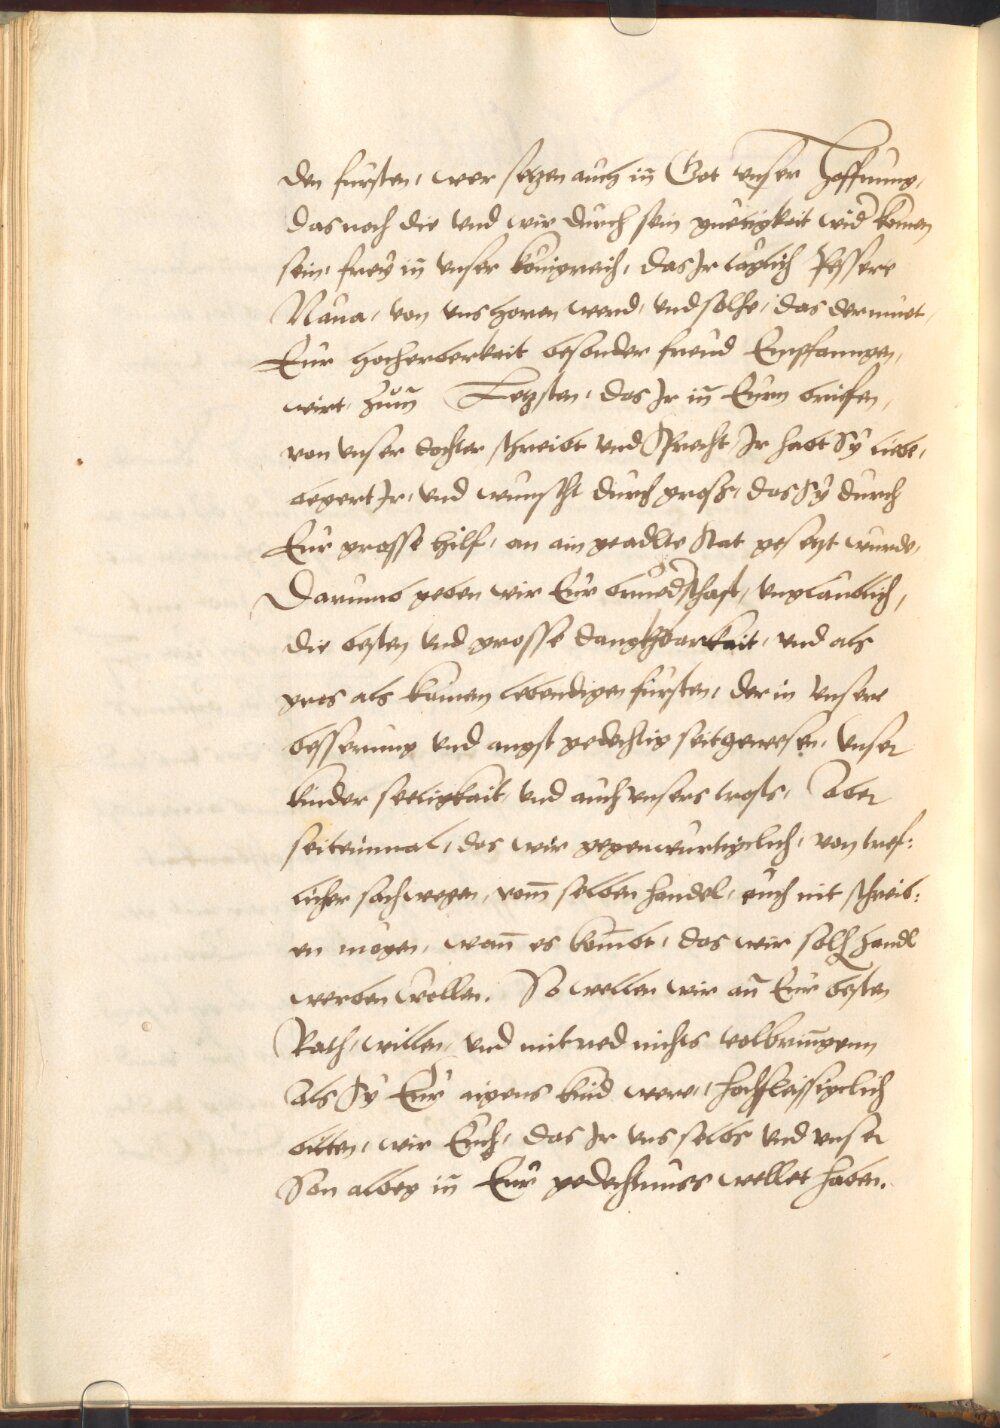 den fursten, wer setzen auch in Got unser hoffnung,
das noch die und wir durch sein guetigkeit wid komen
sein, frey in unser kônigreich, das Jr täglich pessere
Naua, von uns horen werd, und solhs, das dermuet,
Eur hocherberkait besonder freud Empfanngen,
wirt, Zum Letzsten, das Jr in Eurn briefen,
von unser dochter schreibt und Sprecht, Jr habt Sÿ liebe,
begert Jr, und wunscht durch gross, das Sÿ durch
Eur grosse hilf, an ain geadlte stat gesetzt wurde,
Darumb geben wir Eur bruedschaft, unglaublich,
die besten und grosse danghbarkait, und als
gros als kainem lebendigen fursten, der in unsere
besserung und angst gedechtig seit gewesen, unser
kinder seeligkait, und auch unsers trosts, Aber
seiteinmal, das wir gegenwurtigclich, von tref-
licher sach wegen, vom selben handel, euch nit schreib-
en mögen, wann es kombt, das wir solh handl
werben wellen. So wellen wir an Eur besten
Rath, willen, und mitred nichts volbringenn
Als Sÿ Eur aigens kind were, hochfleissigclich
bitten, wir Euch, das Jr uns selbs und unser
Son albeg in Eur gedechtnuss wellet haben.